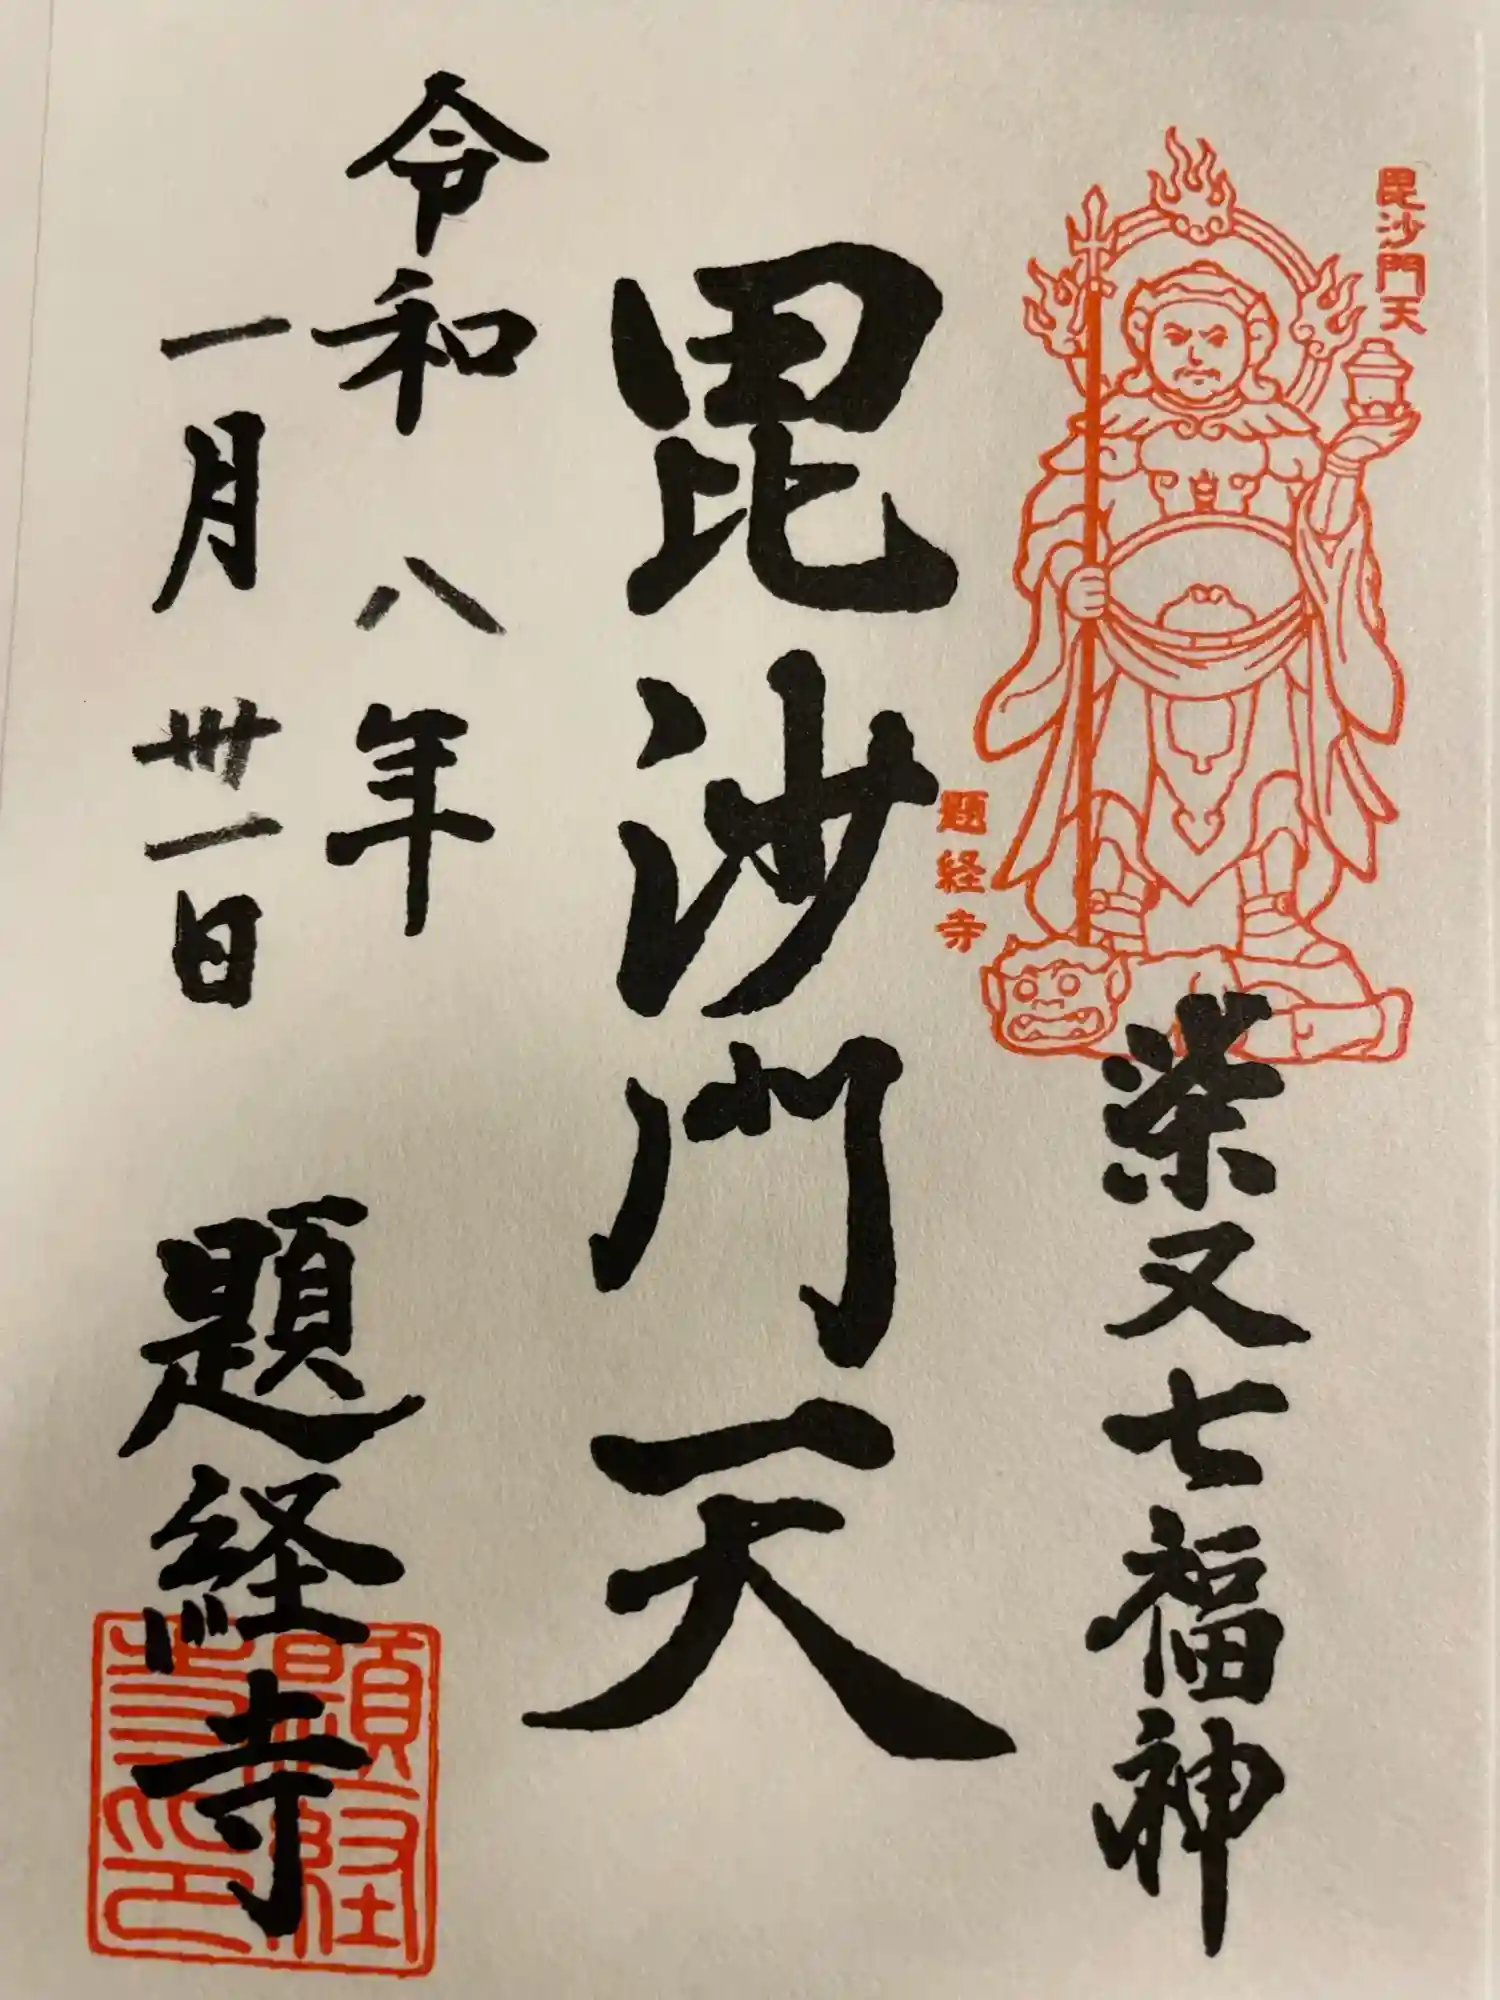 毘沙門天
題経寺
柴又七福神
毘沙門天
令和八年
一月卅一日
題経寺
題経寺印